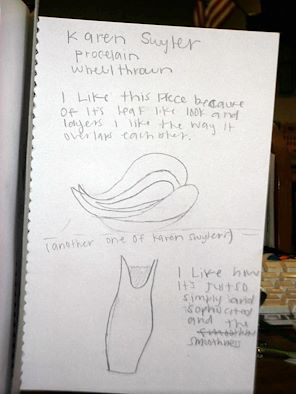 Karen Swyler
porcelain
wheel thrown
I Like this Piece because
of it's leaf like look and
layers I like the way it
overlaps eachother.
(another one of Karen swylers)
I Like how
it's just so
simply and
sophicated
and the
smoothness